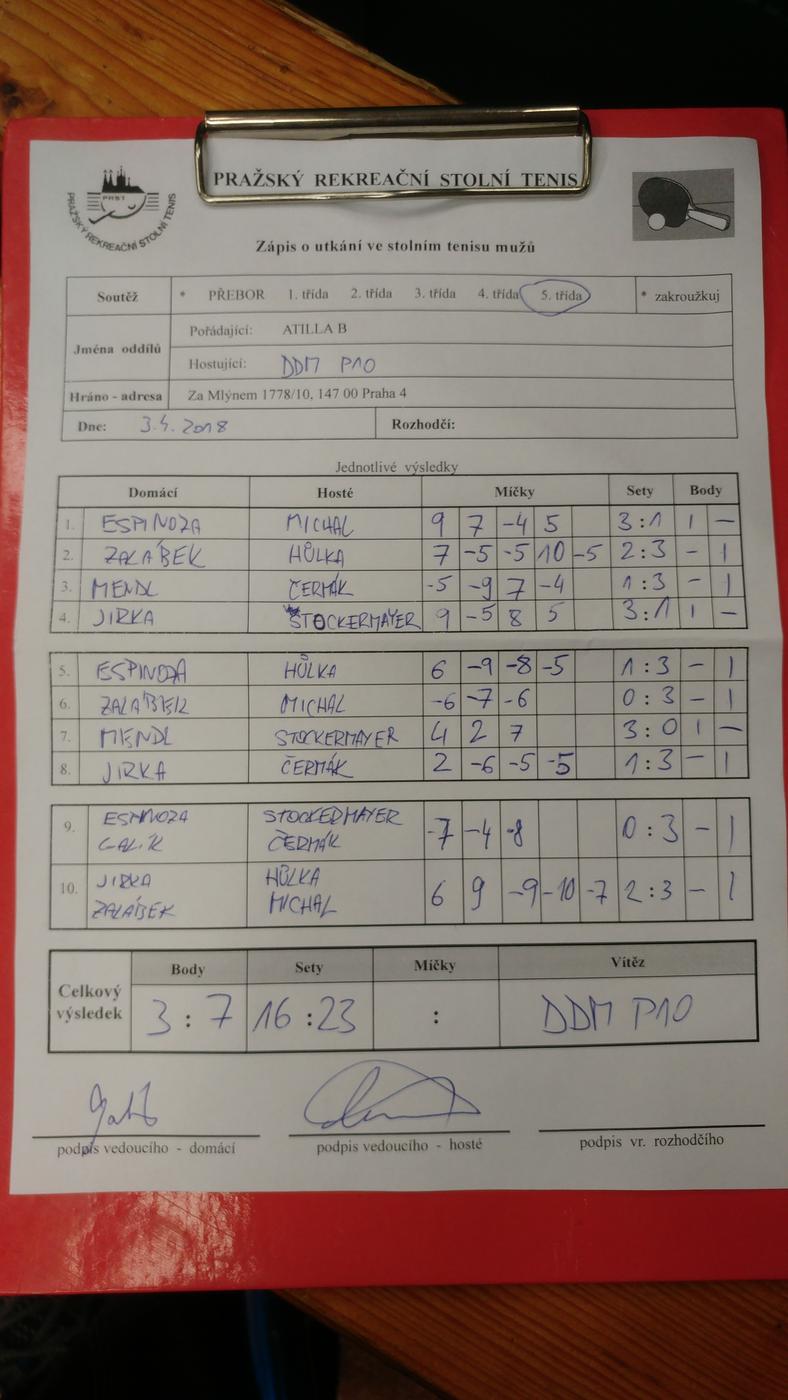 PRAŽSKÝ REKREAČNÍ STOLNÍ TENIS
PRST
PRAŽSKÝ REKREAČNÍ STOLNÍ TENIS
Zápis o utkání ve stolním tenisu mužů
Soutěž * PŘEBOR 1. třída 2. třída 3. třída 4. třída 5. třída * zakroužkuj
Jména oddílů
Pořádající: ATILLA B
Hostující: DDM P10
Hráno - adresa Za Mlýnem 1778/10, 147 00 Praha 4
Dne: 3.4. 2018 Rozhodčí:
Jednotlivé výsledky
Domácí Hosté Míčky Sety Body
1. ESPINOZA MICHAL 9 7 -4 5 3:1 1 -
2. ZALÁBEK HŮLKA 7 -5 -5 10 -5 2:3 - 1
3. MENDL ČERMÁK -5 -9 7 -4 1:3 - 1
4. JIRKA STOCKERMAYER 9 -5 8 5 3:1 1 -
5. ESPINOZA HŮLKA 6 -9 -8 -5 1:3 - 1
6. ZALÁBEK MICHAL -6 -7 -6 0:3 - 1
7. MENDL STOCKERMAYER 4 2 7 3:0 1 -
8. JIRKA ČERMÁK 2 -6 -5 -5 1:3 - 1
9. ESPINOZA STOCKERMAYER -7 -4 -8 0:3 - 1
GALIK ČERMÁK
10. JIRKA HŮLKA 6 9 -9 -10 -7 2:3 - 1
ZALÁBEK MICHAL
Celkový výsledek
Body Sety Míčky Vítěz
3:7 16:23 : DDM P10
podpis vedoucího - domácí podpis vedoucího - hosté podpis vr. rozhodčího